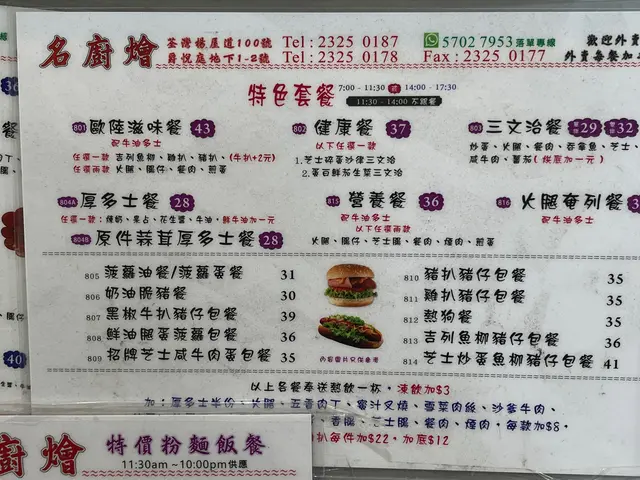 名廚燴 荃灣楊屋道100號 爵悅庭地下1-2號
Tel: 2325 0187
Tel: 2325 0178
5702 7953 落單專線
Fax: 2325 0177
歡迎外賣
外賣每餐加
特色套餐 7:00 - 11:30 或 14:00 - 17:30
11:30 - 14:00 不設餐
801 歐陸滋味餐 43
配牛油多士
任選一款 吉列魚柳、雞扒、豬扒、(牛扒+2元)
任選兩款 火腿、腸仔、餐肉、煎蛋
802 健康餐 37
以下任選一款
1.芝士碎蛋沙律三文治
2.蛋白鮮茄生菜三文治
803 三文治餐 29 32
炒蛋、火腿、餐肉、吞拿魚、芝士、
咸牛肉、蕃茄 (烘底加一元)
804A 厚多士餐 28
任選一款：煉奶、果占、花生醬、牛油、鮮牛油加一元
804B 原件蒜茸厚多士餐 28
815 營養餐 36
配牛油多士
以下任選兩款
火腿、腸仔、芝士腸、餐肉、煙肉、煎蛋
816 火腿奄列餐
配牛油多士
805 菠蘿油餐/菠蘿蛋餐 31
806 奶油脆豬餐 30
807 黑椒牛扒豬仔包餐 39
808 鮮油腿蛋菠蘿包餐 36
809 招牌芝士咸牛肉蛋包餐 35
810 豬扒豬仔包餐 35
811 雞扒豬仔包餐 35
812 熱狗餐 35
813 吉列魚柳豬仔包餐 36
814 芝士炒蛋魚柳豬仔包餐 41
內容圖片只供參考
以上各餐奉送熱飲一杯，凍飲加$3
加：厚多士半份、火腿、五香肉丁、蜜汁叉燒、雪菜肉絲、沙爹牛肉、
、香腸、芝士腸、餐肉、煙肉，每款加$8，
扒每件加$22，加底$12
40
廚燴 特價粉麵飯餐
11:30am ~10:00pm供應